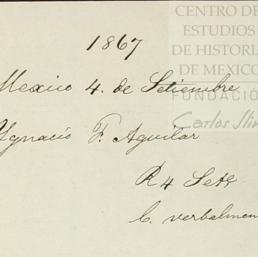 CENTRO DE
ESTUDIOS
DE HISTORIA
DE MEXICO
FUNDACIÓ
Carlos Slim
1867
Mexico 4. de Setiembre
Ygnacio F. Aguilar
R 4 Sete
C. verbalmen